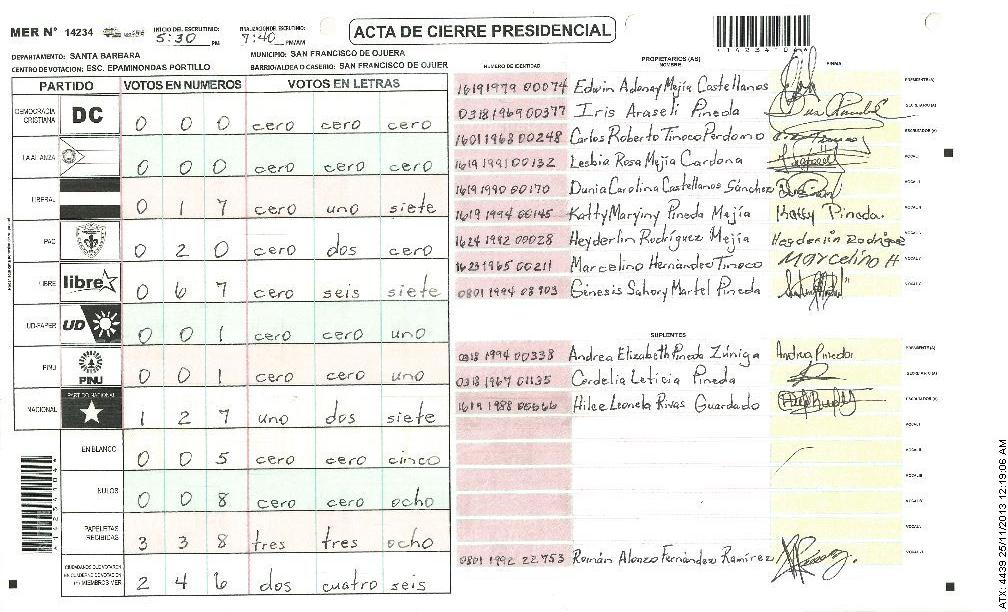 MER N° 14234 INICIO DEL ESCRUTINIO: 5:30 PM FINALIZACION DEL ESCRUTINIO: 7:40 PM/AM ACTA DE CIERRE PRESIDENCIAL
DEPARTAMENTO: SANTA BARBARA MUNICIPIO: SAN FRANCISCO DE OJUERA
CENTRO DE VOTACION: ESC. EPAMINONDAS PORTILLO BARRIO/ALDEA O CASERIO: SAN FRANCISCO DE OJUER
PARTIDO VOTOS EN NUMEROS VOTOS EN LETRAS
DEMOCRACIA CRISTIANA DC 0 0 0 cero cero cero
LA ALIANZA 0 0 0 cero cero cero
LIBERAL 0 1 7 cero uno siete
PAC 0 2 0 cero dos cero
LIBRE libre 0 6 7 cero seis siete
UD-FAPER UD 0 0 1 cero cero uno
PINU PINU 0 0 1 cero cero uno
NACIONAL PARTIDO NACIONAL 1 2 7 uno dos siete
EN BLANCO 0 0 5 cero cero cinco
NULOS 0 0 8 cero cero ocho
PAPELETAS RECIBIDAS 3 3 8 tres tres ocho
CIUDADANOS QUE VOTARON EN CUADERNO DE VOTACION (+) MIEMBROS MER 2 4 6 dos cuatro seis
NUMERO DE IDENTIDAD PROPIETARIOS (AS) NOMBRE FIRMAS
1619 1979 00074 Edwin Adonay Mejía Castellanos PRESIDENTE(A)
0318 1969 00377 Iris Araseli Pineda SECRETARIO(A)
1601 1968 00248 Carlos Roberto Tinoco Perdomo ESCRUTADOR (A)
1619 1991 00132 Lesbia Rosa Mejía Cardona VOCAL I
1619 1990 00170 Dunia Carolina Castellanos Sánchez
1619 1994 00145 Katty Maryiny Pineda Mejía Katty Pineda.
1624 1992 00028 Heyderlin Rodríguez Mejía Heyderlin Rodríguez
1623 1965 00211 Marcelino Hernández Tinoco Marcelino H
0801 1994 08903 Génesis Sahory Martel Pineda
SUPLENTES
0318 1994 00338 Andrea Elizabeth Pineda Zúniga Andrea Pineda PRESIDENTE(A)
0318 1967 01135 Cordelia Leticia Pineda SECRETARIO(A)
1619 1988 Hilce Leonela Rivas Guardado ESCRUTADOR (A)
0801 1992 22753 Román Alonzo Fernández Ramírez
ATX: 4439 25/11/2013 12:19:06 AM